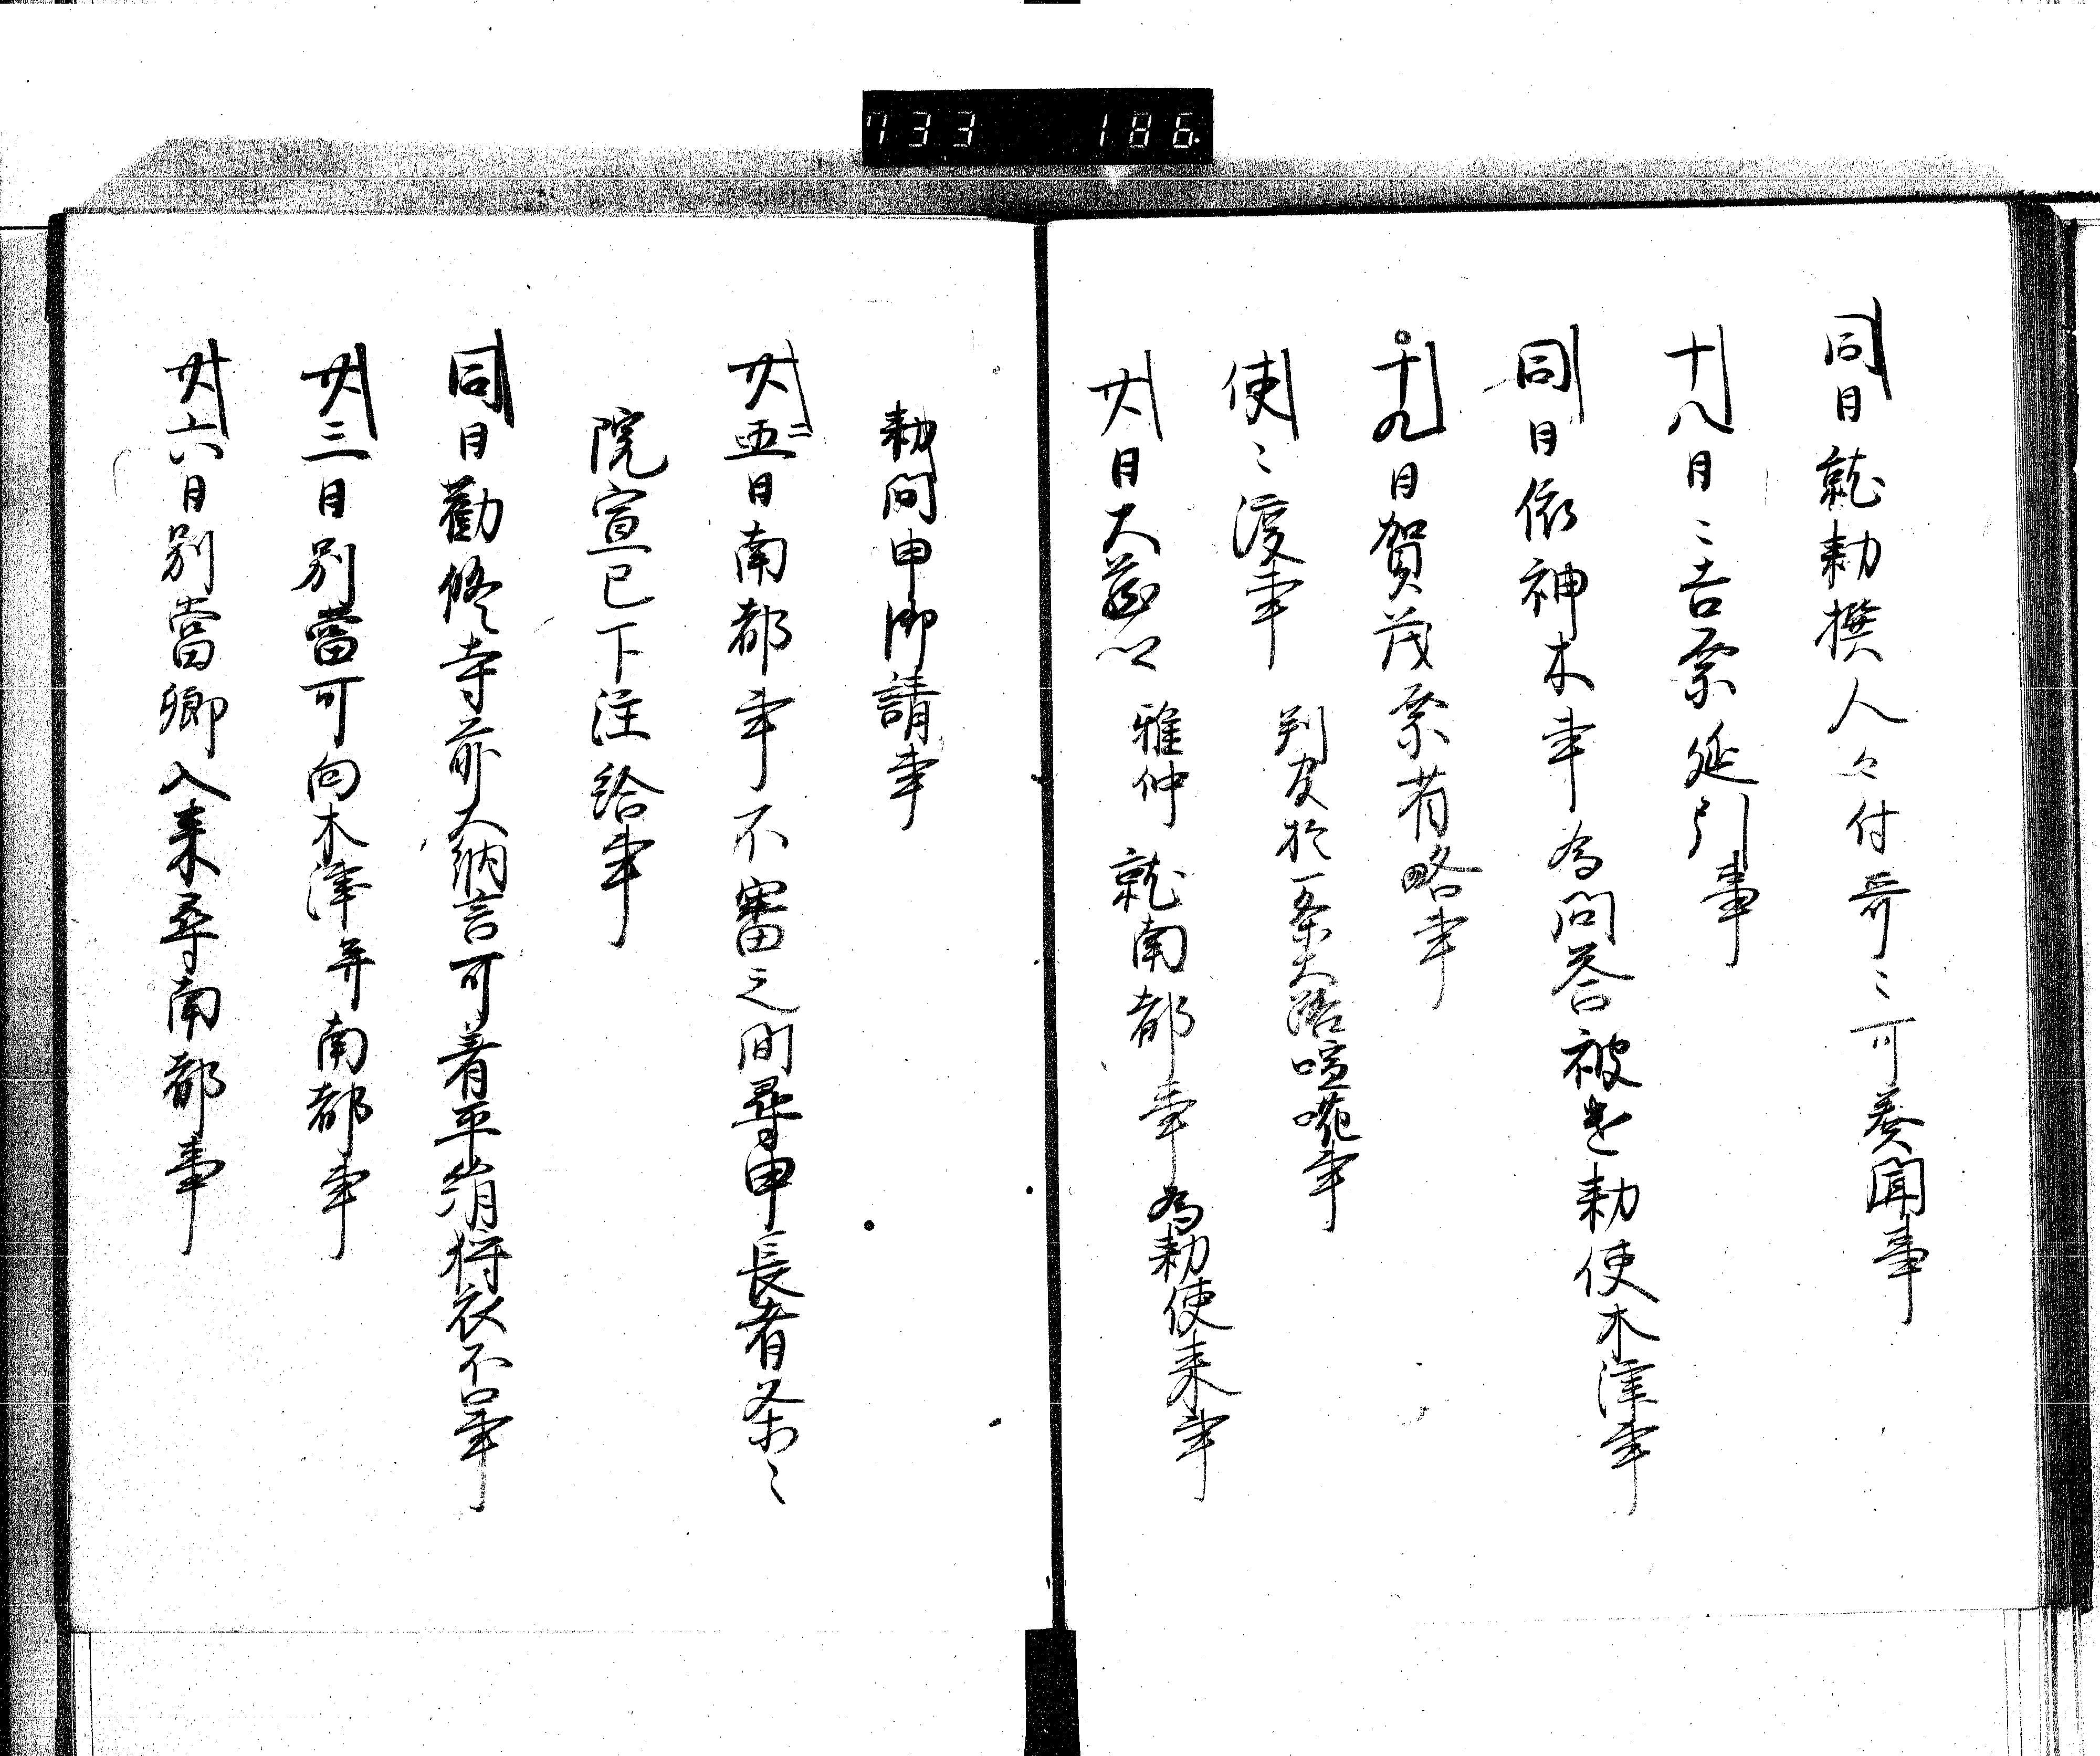 733 186
同日就勅撰人々付哥々可奏聞事
十八日々吉祭延引事
同日依神木事為問答被遣勅使木津事
十九日賀茂祭省略事
使々渡事 判官於一条大路喧嘩事
廿日大蔵卿雅仲就南都事為勅使来事
勅問申御請事
廿二五日南都事不審之間尋申長者条々
院宣已下注給事
同日勧修寺前大納言可着平絹狩衣不事
廿三日別當可向木津并南都事
廿六日別當卿入来尋南都事